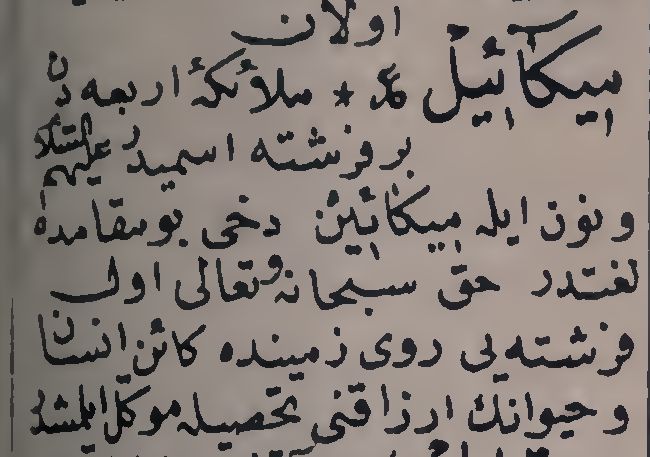 اولان
ميكائيل ملائكهٔ اربعه دن
بر فرشته اسميدر عليهم السلام
و نون ايله ميكائين دخى بو مقامده
لغتدر حق سبحانه وتعالى اول
فرشته يى روى زمينده كائن انسان
و حيوانك ارزاقنى تحصيله موكل ايلمشدر